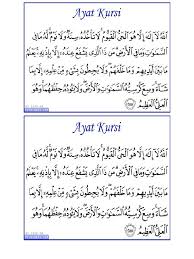 Ayat Kursi
اللَّهُ لَا إِلَٰهَ إِلَّا هُوَ الْحَيُّ الْقَيُّومُ لَا تَأْخُذُهُ سِنَةٌ وَلَا نَوْمٌ لَهُ مَا فِي
السَّمَاوَاتِ وَمَا فِي الْأَرْضِ مَنْ ذَا الَّذِي يَشْفَعُ عِنْدَهُ إِلَّا بِإِذْنِهِ يَعْلَمُ
مَا بَيْنَ أَيْدِيهِمْ وَمَا خَلْفَهُمْ وَلَا يُحِيطُونَ بِشَيْءٍ مِنْ عِلْمِهِ إِلَّا بِمَا
شَاءَ وَسِعَ كُرْسِيُّهُ السَّمَاوَاتِ وَالْأَرْضَ وَلَا يَئُودُهُ حِفْظُهُمَا وَهُوَ
الْعَلِيُّ الْعَظِيمُ
Ayat Kursi
اللَّهُ لَا إِلَٰهَ إِلَّا هُوَ الْحَيُّ الْقَيُّومُ لَا تَأْخُذُهُ سِنَةٌ وَلَا نَوْمٌ لَهُ مَا فِي
السَّمَاوَاتِ وَمَا فِي الْأَرْضِ مَنْ ذَا الَّذِي يَشْفَعُ عِنْدَهُ إِلَّا بِإِذْنِهِ يَعْلَمُ
مَا بَيْنَ أَيْدِيهِمْ وَمَا خَلْفَهُمْ وَلَا يُحِيطُونَ بِشَيْءٍ مِنْ عِلْمِهِ إِلَّا بِمَا
شَاءَ وَسِعَ كُرْسِيُّهُ السَّمَاوَاتِ وَالْأَرْضَ وَلَا يَئُودُهُ حِفْظُهُمَا وَهُوَ
الْعَلِيُّ الْعَظِيمُ